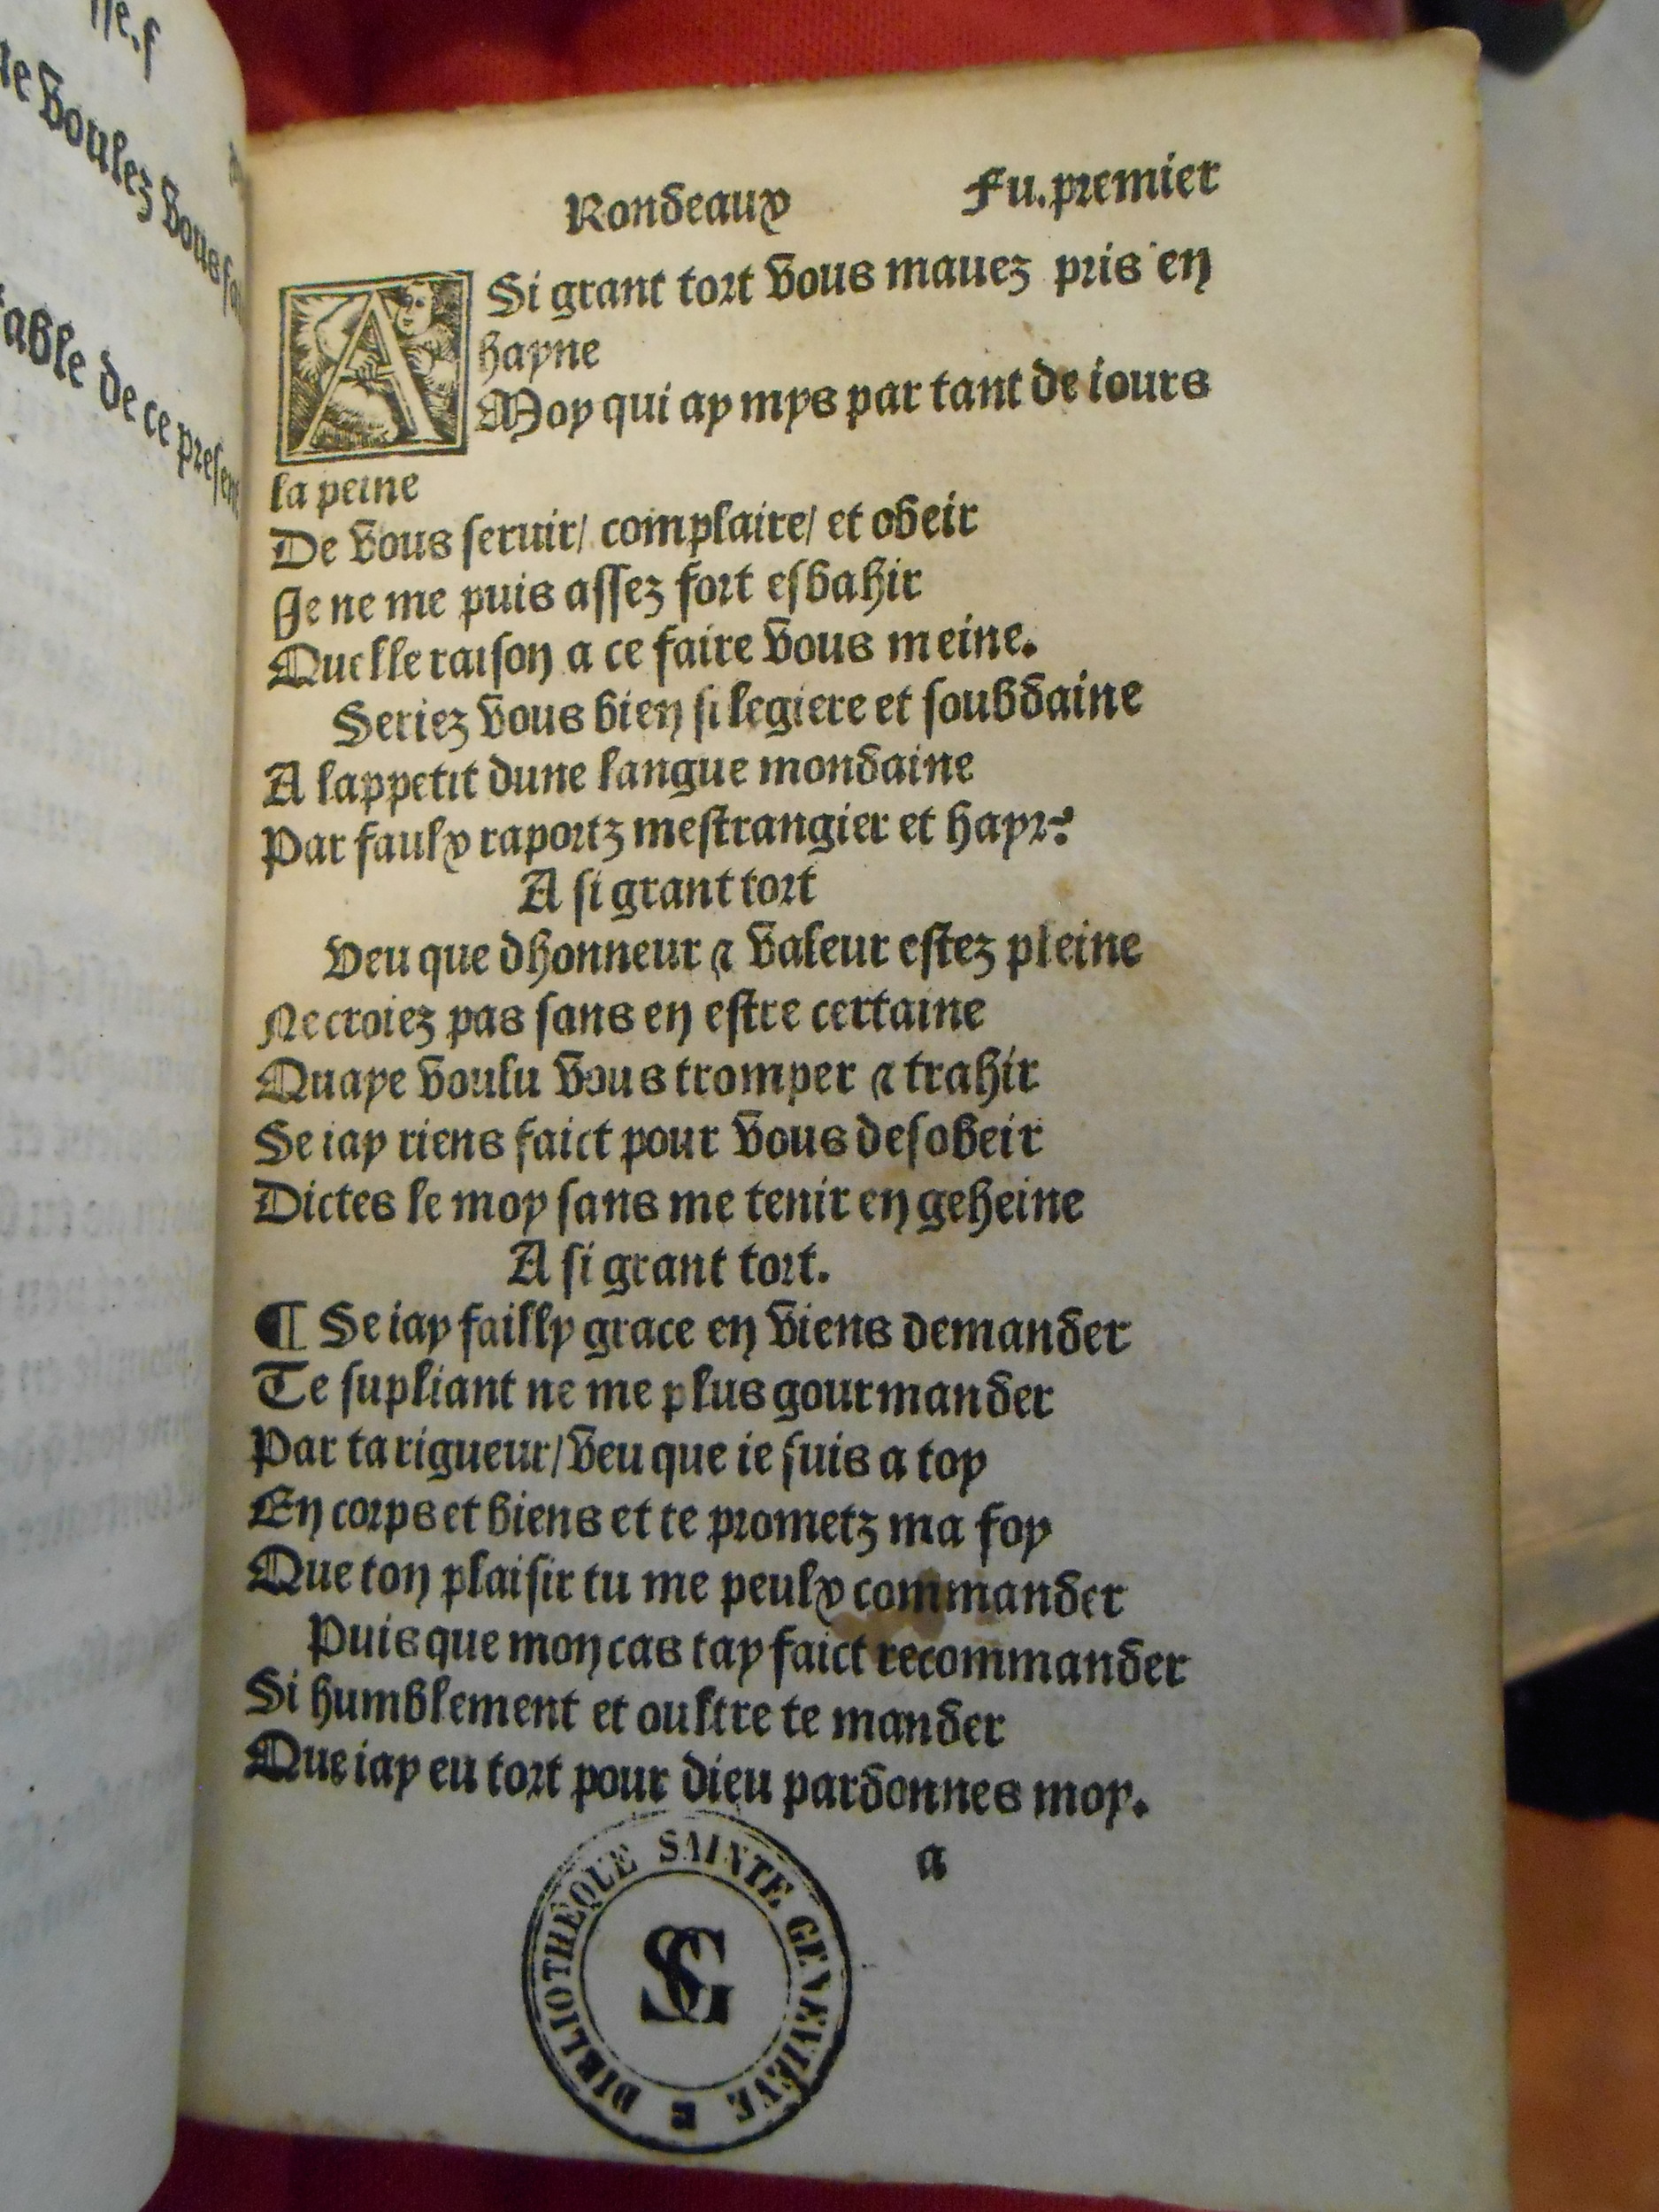 Rondeaux Fu.premier
A Si grant tort vous mauez pris en
hayne
Moy qui ay mys par tant de iours
la peine
De vous seruir/ complaire/ et obeir
Je ne me puis assez fort esbahir
Quelle raison a ce faire vous meine.
Seriez vous bien si legiere et soubdaine
A lappetit dune langue mondaine
Par faulx raportz mestrangier et hayr?
A si grant tort
Veu que dhonneur & valeur estez pleine
Ne croiez pas sans en estre certaine
Quaye voulu vous tromper & trahir
Se iay riens faict pour vous desobeir
Dictes le moy sans me tenir en geheine
A si grant tort.
¶ Se iay failly grace en viens demander
Te supliant ne me plus gourmander
Par ta rigueur/ veu que ie suis a toy
En corps et biens et te prometz ma foy
Que ton plaisir tu me peulx commander
Puis que mon cas tay faict recommander
Si humblement et oultre te mander
Que iay eu tort pour dieu pardonnes moy.
a
BIBLIOTHÈQUE SAINTE GENEVIÈVE
SG
ne voulez vous
table de ce presen